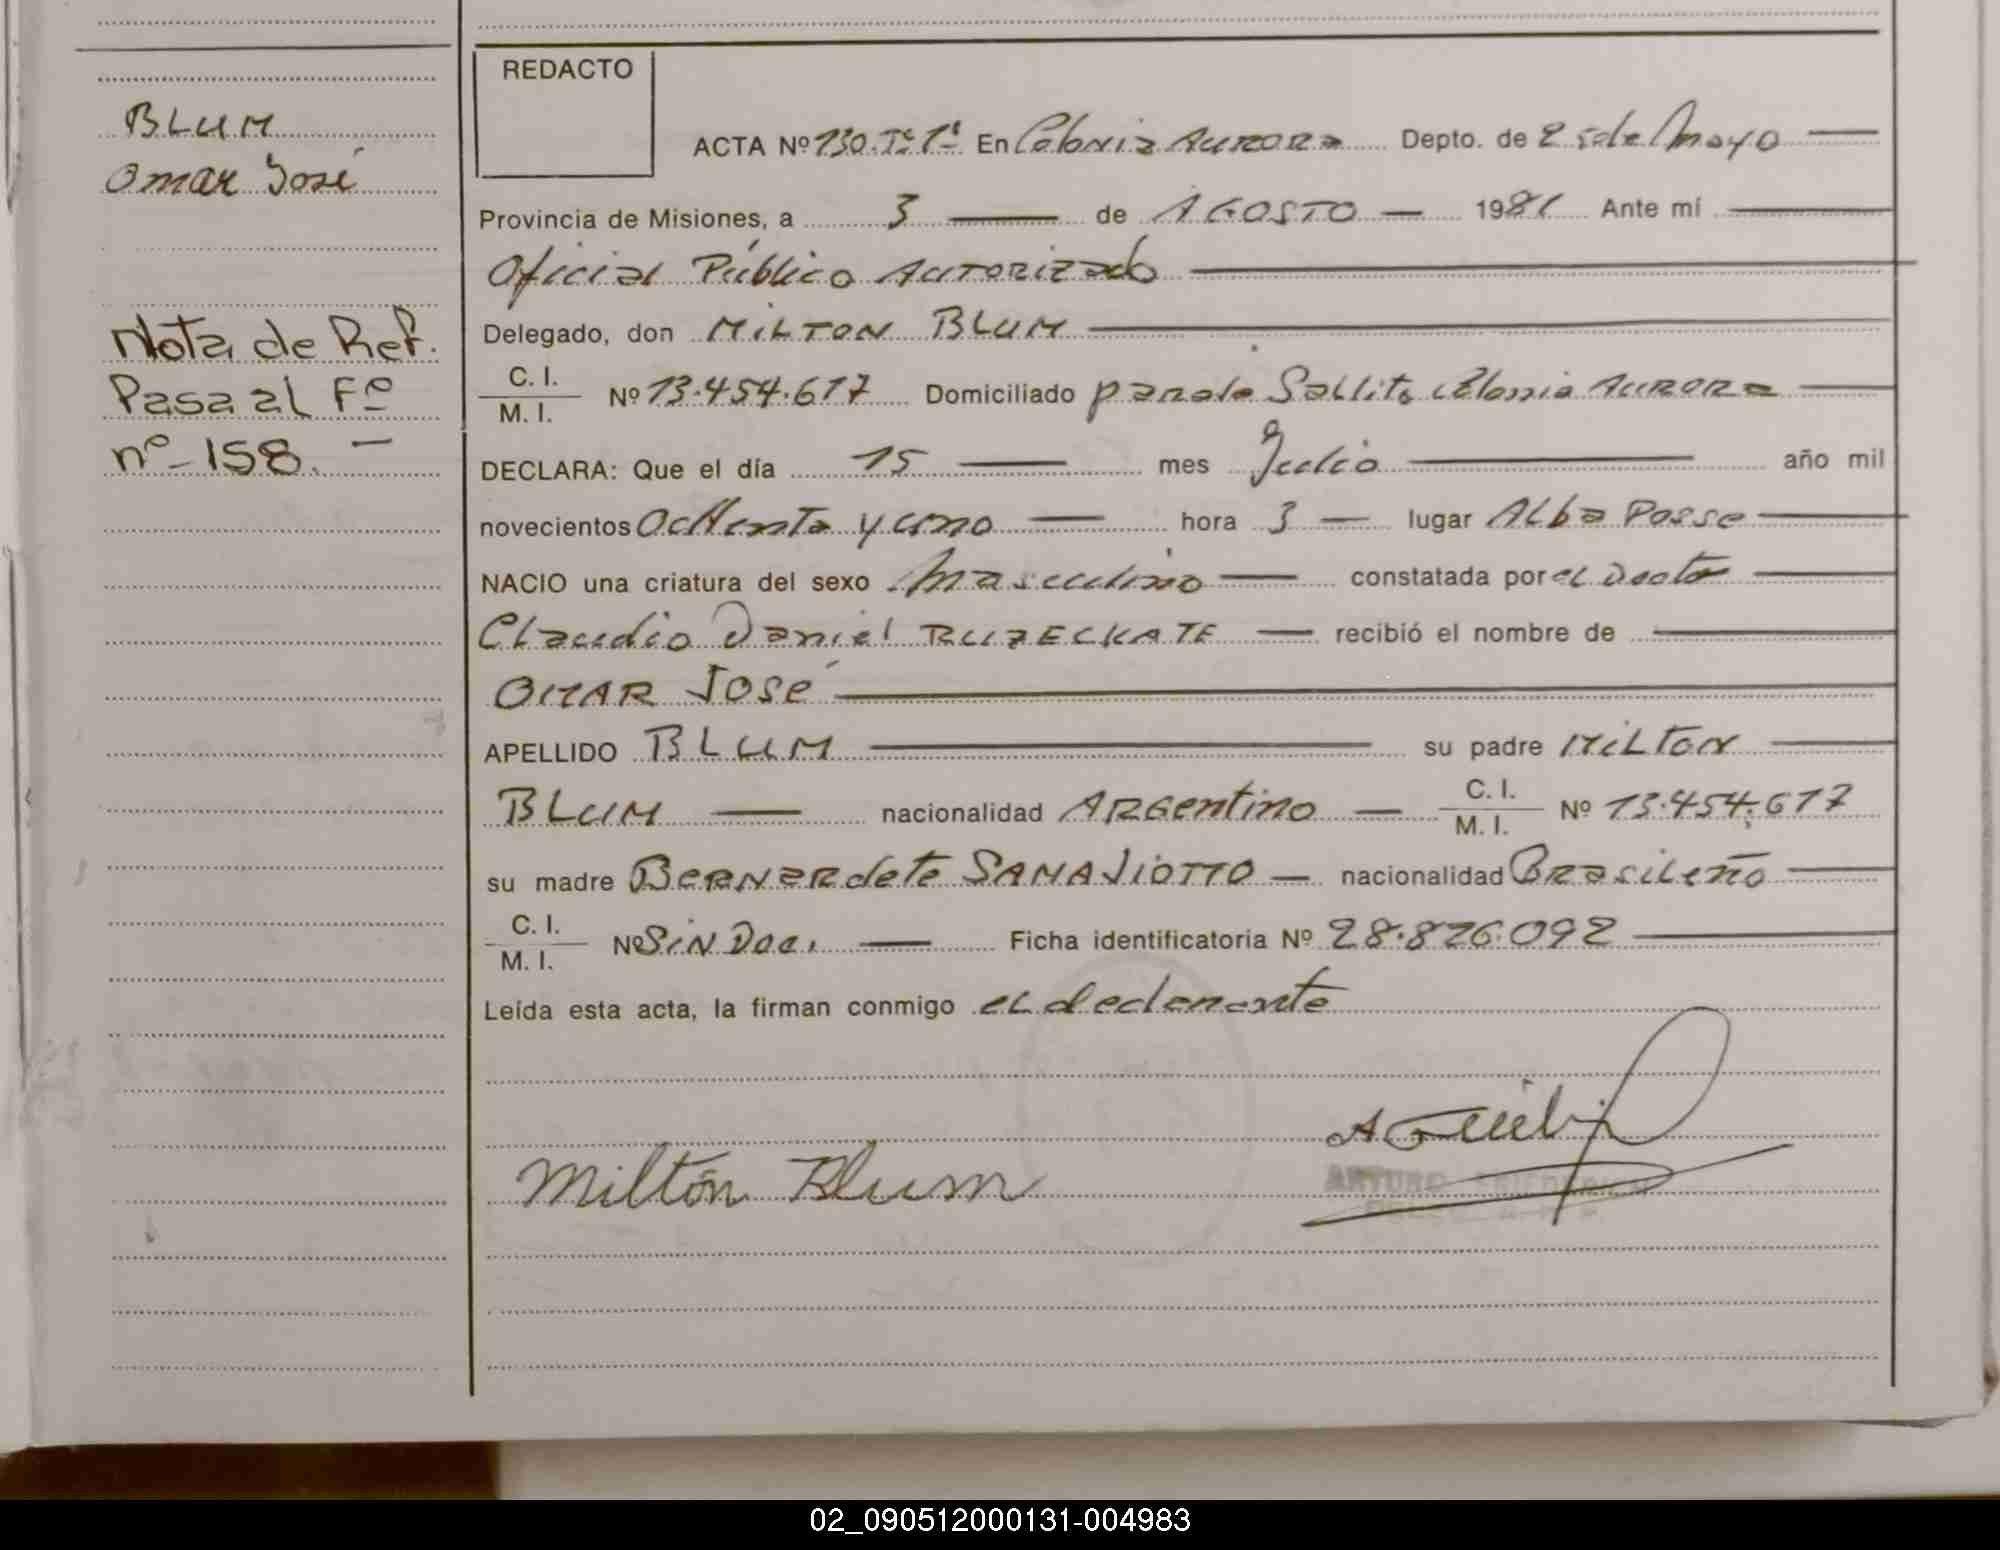 BLUM
Omar José
Nota de Ref.
Pasa al Fº
nº-158. —
REDACTO
ACTA Nº 130. Tº 1º En Colonia Aurora Depto. de 25 de Mayo —
Provincia de Misiones, a 3 — de AGOSTO — 1981 Ante mí —
Oficial Público Autorizado —
Delegado, don MILTON BLUM —
C. I.
M. I. Nº 13.454.617 Domiciliado Saltito Colonia Aurora —
DECLARA: Que el día 15 — mes Julio — año mil
novecientos ochenta y uno — hora 3 — lugar Alba Posse —
NACIO una criatura del sexo Masculino — constatada por el Doctor —
Claudio Daniel — recibió el nombre de —
OMAR JOSÉ —
APELLIDO BLUM — su padre MILTON —
BLUM — nacionalidad ARGentino — C. I.
M. I. Nº 13.454.617
su madre Bernardete SANAVIOTTO — nacionalidad Brasileño —
C. I.
M. I. Nº Sin Doc. — Ficha identificatoria Nº 28.826.092 —
Leída esta acta, la firman conmigo el declarante
Milton Blum
ARTURO
02_090512000131-004983